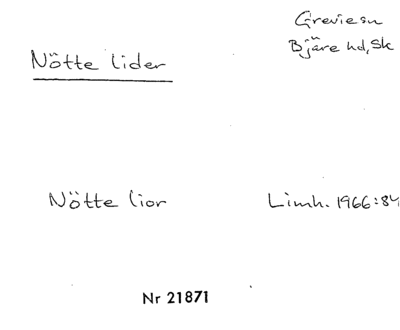 Grevie sn
Bjäre hd, Sk
Nötte lider
Nötte lior
Limh. 1966:84
Nr 21871